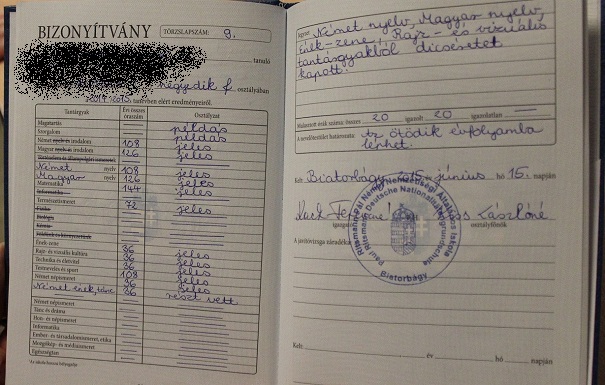 BIZONYÍTVÁNY
TÖRZSLAPSZÁM: 9.
tanuló
negyedik f. osztályában
2014-2015. tanévben elért eredményeiről.
Tantárgyak Évi összes óraszám: Osztályzat
Magatartás példás
Szorgalom példás
Német nyelv és irodalom 108 jeles
Magyar nyelv és irodalom 126 jeles
Történelem és állampolgári ismeretek
Német nyelv 108 jeles
Magyar nyelv 126 jeles
Matematika 144 jeles
Informatika
Természetismeret 72 jeles
Fizika
Biológia
Kémia
Ének-zene 36 jeles
Rajz- és vizuális kultúra 36 jeles
Technika és életvitel 36 jeles
Testnevelés és sport 108 jeles
Német népismeret 36 jeles
Német ének, 36 részt vett
Német népismeret
Tánc és dráma
Hon- és népismeret
Informatika
Ember- és társadalomismeret, etika
Mozgókép- és médiaismeret
Egészségtan
Jegyzet Német nyelv, Magyar nyelv,
Ének-zene, Rajz- és vizuális
tantárgyakból dicséretet
kapott.
Mulasztott órák száma: összes 20 igazolt 20 igazolatlan
A nevelőtestület határozata: Az ötödik évfolyamba
léphet.
Kelt Biatorbágy, 2015. év június hó 15. napján
osztályfőnök
A javítóvizsga záradéka
Ritsmann Pál Német Nemzetiségi Általános Iskola
Paul Ritsmann Deutsche Nationalitätengrundschule
Biatorbágy
Kelt: év hó napján